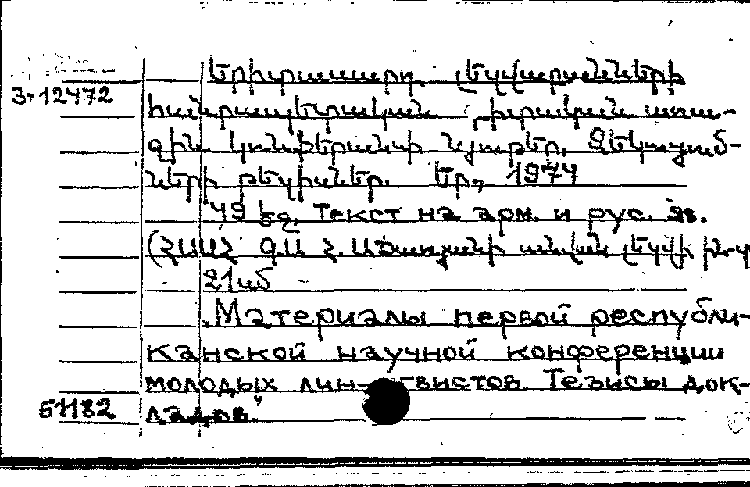 Երիտասարդ լեզվաբանների
3-12472
հանրապետական գիտական առա-
ջին կոնֆերանսի նյութեր. Զեկուցում-
ների թեզիսներ. Եր., 1974
49 էջ. Текст на арм. и рус. яз.
(ՀՍՍՀ ԳԱ Հ. Աճառյանի անվան լեզվի ին-տ
21սմ
"Материалы первой республи-
канской научной конференции
молодых лингвистов. Тезисы док-
51182 ладов."